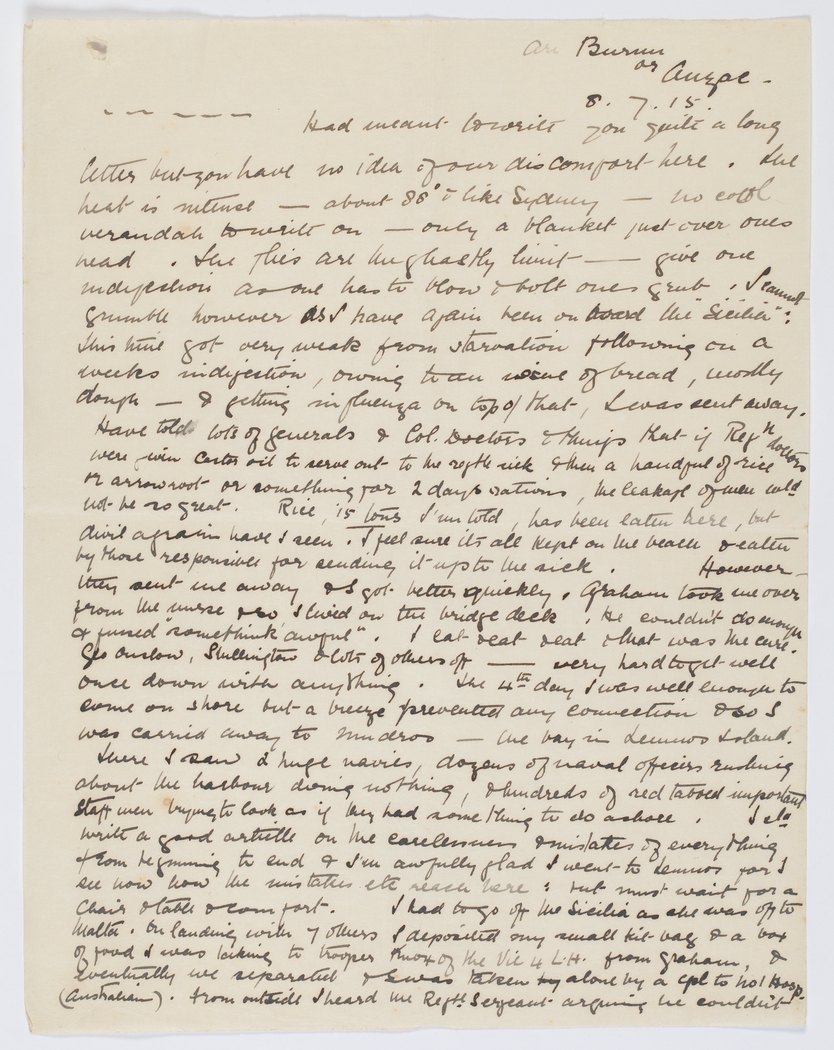 Ari Burnu
or Anzac -
8. 7. 15.
Had meant to write you quite a long
letter but you have no idea of our discomfort here. The
heat is intense — about 88° & like Sydney — no cool
verandah to write on — only a blanket just over ones
head. The flies are the ghastly limit — give one
indigestion as one has to blow & bolt ones grub. I cannot
grumble however as I have again been on board the "Sicilia":
This time got very weak from starvation following on a
weeks indigestion, owing to an issue of bread, mostly
dough — & getting influenza on top of that, I was sent away.
Have told lots of generals & Col. Doctors & things that if Regtl doctors
were given Castor oil to serve out to the regtl sick & then a handful of rice
or arrowroot or something for 2 days rations, the leakage of men wld
not be so great. Rice, 15 tons I'm told, has been eaten here, but
divil a grain have I seen. I feel sure its all kept on the beach & eaten
by those responsible for sending it up to the sick. However —
they sent me away & I got better quickly. Graham took me over
from the nurse & so I lived on the bridge deck. He couldn't do enough
& fussed "somethink awful". I eat & eat & eat & that was the cure.
Geo Onslow, & lots of others off — very hard to get well
once down with anything. The 4th day I was well enough to
come on shore but a breeze prevented any connection & so I
was carried away to Mudros — the bay in Lemnos Island.
There I saw 2 huge navies, dozens of naval officers rushing
about the harbour doing nothing, & hundreds of red tabbed important
Staff men trying to look as if they had something to do ashore. I cld
write a good article on the carelessness & mistakes of everything
from beginning to end & I'm awfully glad I went to Lemnos for I
see now how the mistakes etc reach here: but must wait for a
Chair & table & comfort. I had to go off the Sicilia as she was off to
Malta. On landing with 7 others I deposited my small kit bag & a box
of food I was taking to trooper Knox of the Vic 4 L.H. from Graham, &
eventually we separated & I was taken alone by a cpl to No 1 Hosp.
(Australian). From outside I heard the Regtl Sergeant arguing he couldn't